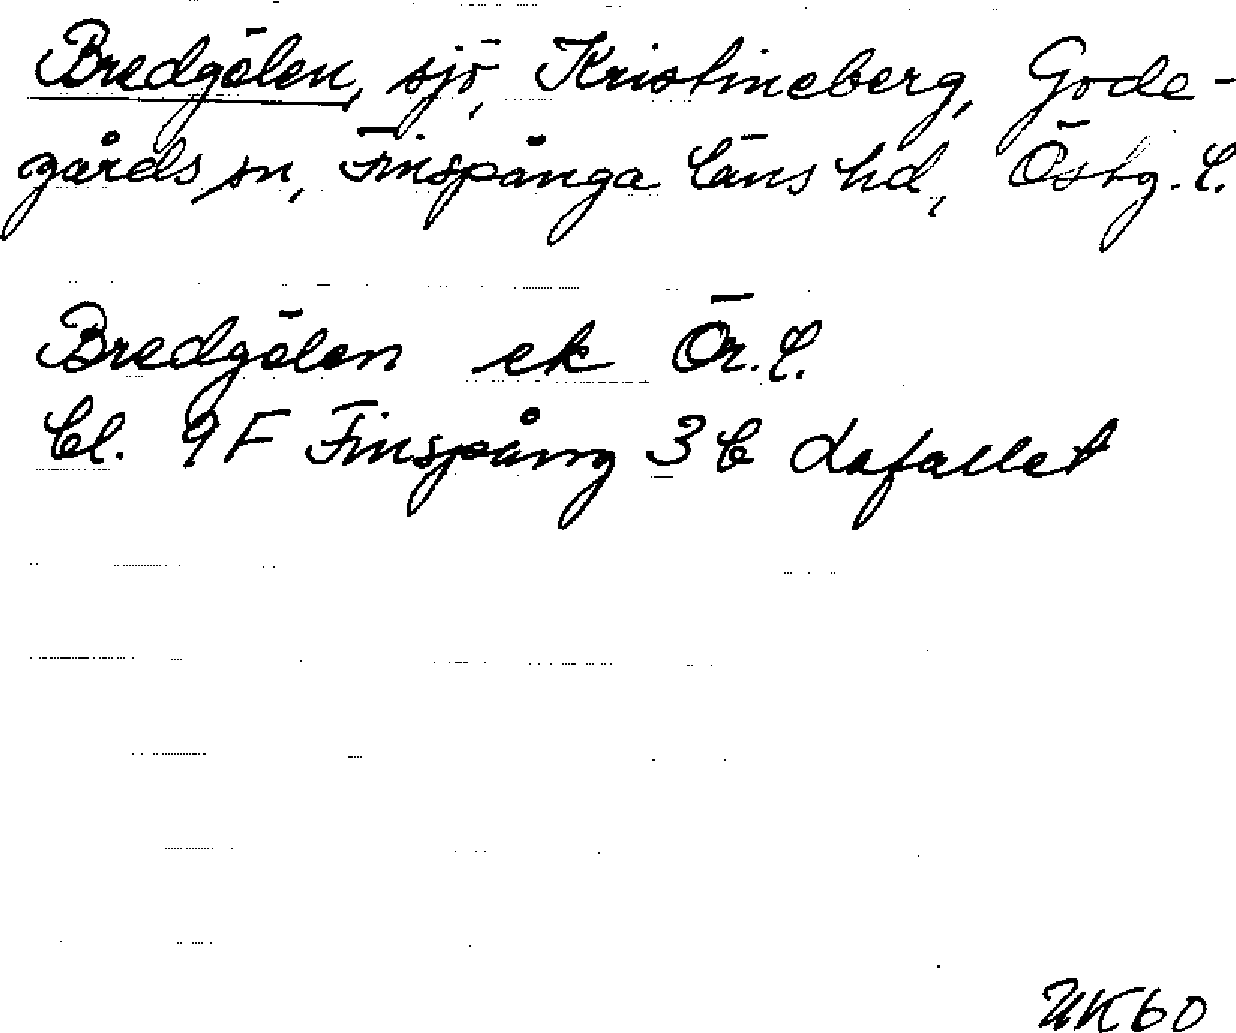 Bredgölen, sjö, Kristineberg, Gode-
gårds sn, Finspånga läns hd, Östg. l.
Bredgölen ek Ör. l.
bl. 9F Finspång 3b Lafallet
UK60